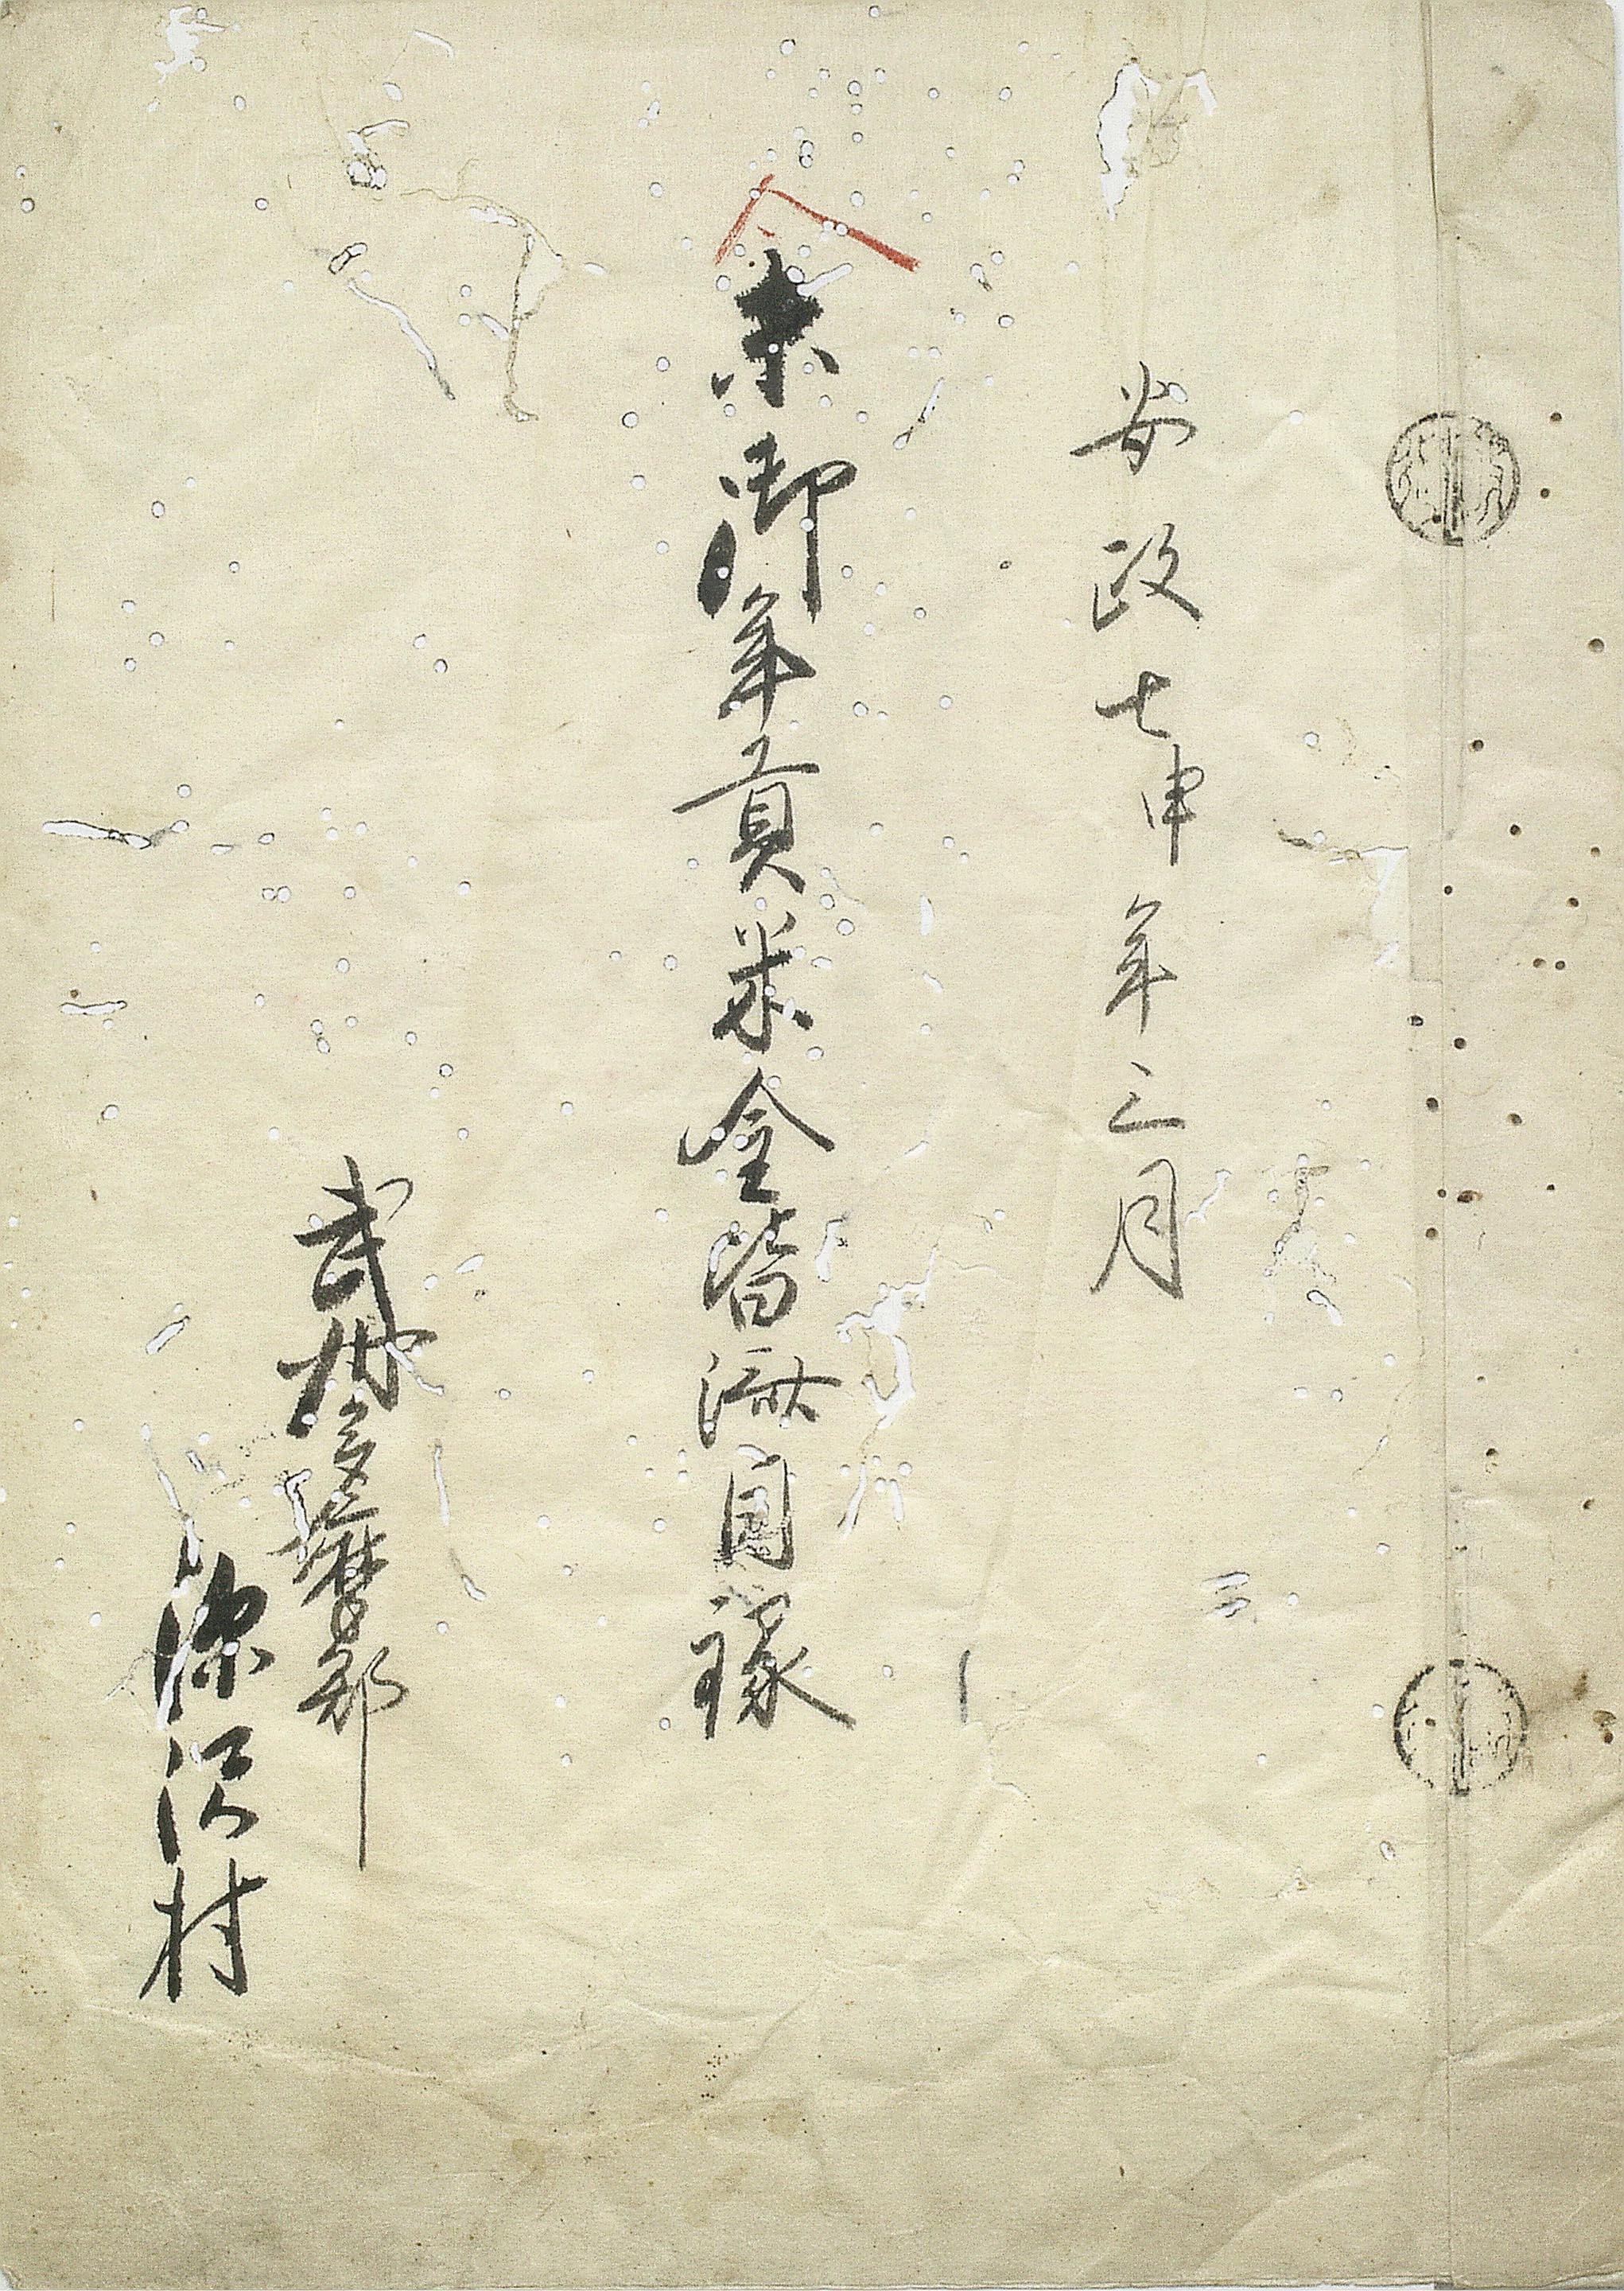 安政七申年三月
未御年貢米金皆済目録
武州多摩郡
深沢村